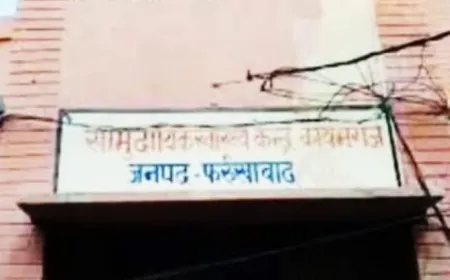 सामुदायिक स्वास्थ्य केन्द्र कायमगंज
जनपद - फर्रुखाबाद